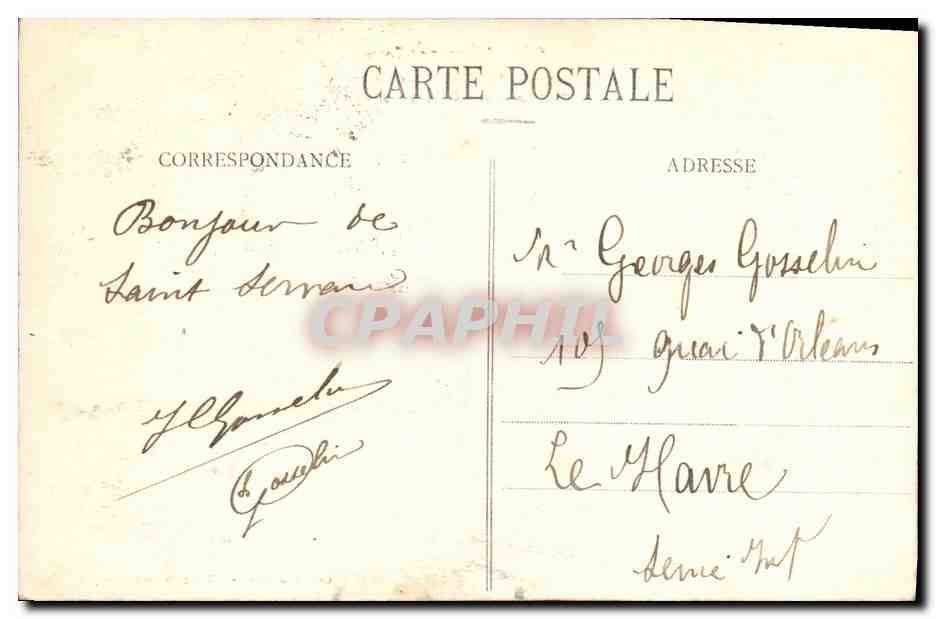 CARTE POSTALE
CORRESPONDANCE
Bonjour de
Saint Servan
H Gosselin
Gosselin
ADRESSE
Mr Georges Gosselin
105 quai d'Orléans
Le Havre
Seine Infre
CPAPHIL